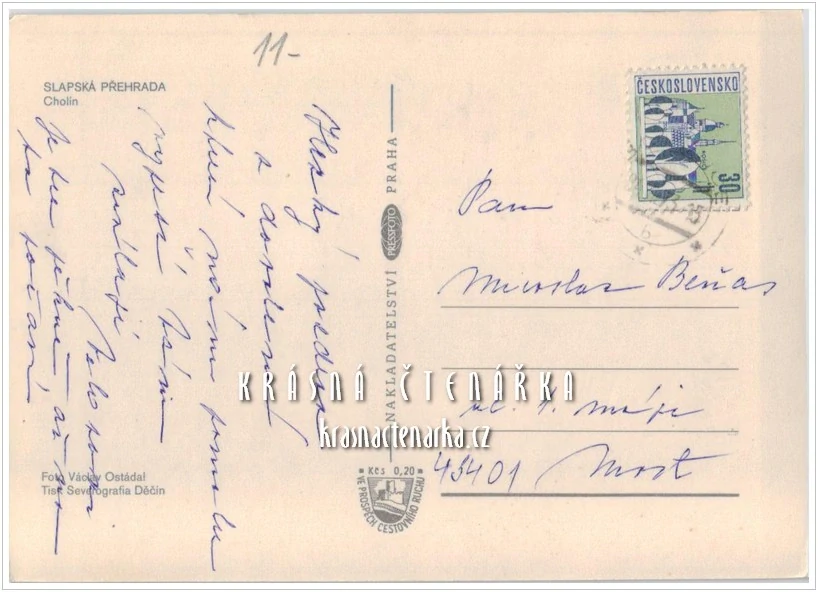 11-
SLAPSKÁ PŘEHRADA
Cholín
Hezký pozdrav
z dovolené
která nám pomalu
vyprší. Vším
Je tu pěkně až na
to počasí
Foto Václav Ostádal
Tisk Severografia Děčín
NAKLADATELSTVÍ PRESSFOTO PRAHA
Kčs 0,20
VE PROSPĚCH CESTOVNÍHO RUCHU
ČESKOSLOVENSKO
30 h
Pan
Miroslav Beňas
ul. 1. máje
43401 Most
KRÁSNÁ ČTENÁŘKA
krasnactenarka.cz